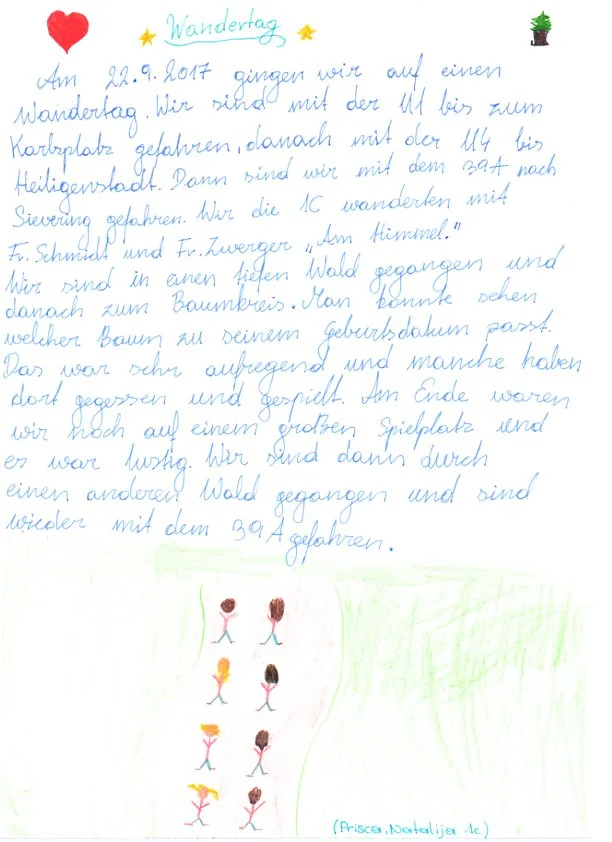 Wandertag
Am 22.9.2017 gingen wir auf einen
Wandertag. Wir sind mit der U1 bis zum
Karlsplatz gefahren, danach mit der U4 bis
Heiligenstadt. Dann sind wir mit dem 39A nach
Sievering gefahren. Wir die 1C wanderten mit
Fr. Schmidt und Fr. Zwerger „Am Himmel."
Wir sind in einen tiefen Wald gegangen und
danach zum Baumkreis. Man konnte sehen
welcher Baum zu seinem Geburtsdatum passt.
Das war sehr aufregend und manche haben
dort gegessen und gespielt. Am Ende waren
wir noch auf einem großen Spielplatz und
es war lustig. Wir sind dann durch
einen anderen Wald gegangen und sind
wieder mit dem 39A gefahren.
(Prisca, Natalija 1c)